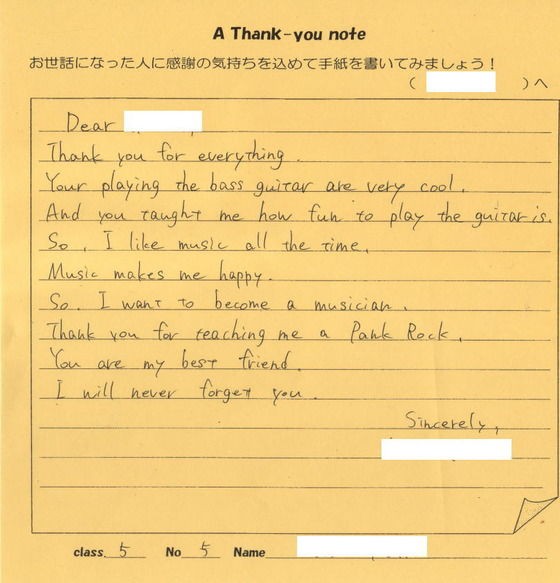 A Thank-you note
お世話になった人に感謝の気持ちを込めて手紙を書いてみましょう！
( )へ
Dear
Thank you for everything.
Your playing the bass guitar are very cool.
And you taught me how fun to play the guitar is.
So, I like music all the time.
Music makes me happy.
So, I want to become a musician.
Thank you for teaching me a Pank Rock.
You are my best friend.
I will never forget you.
Sincerely,
class 5 No 5 Name